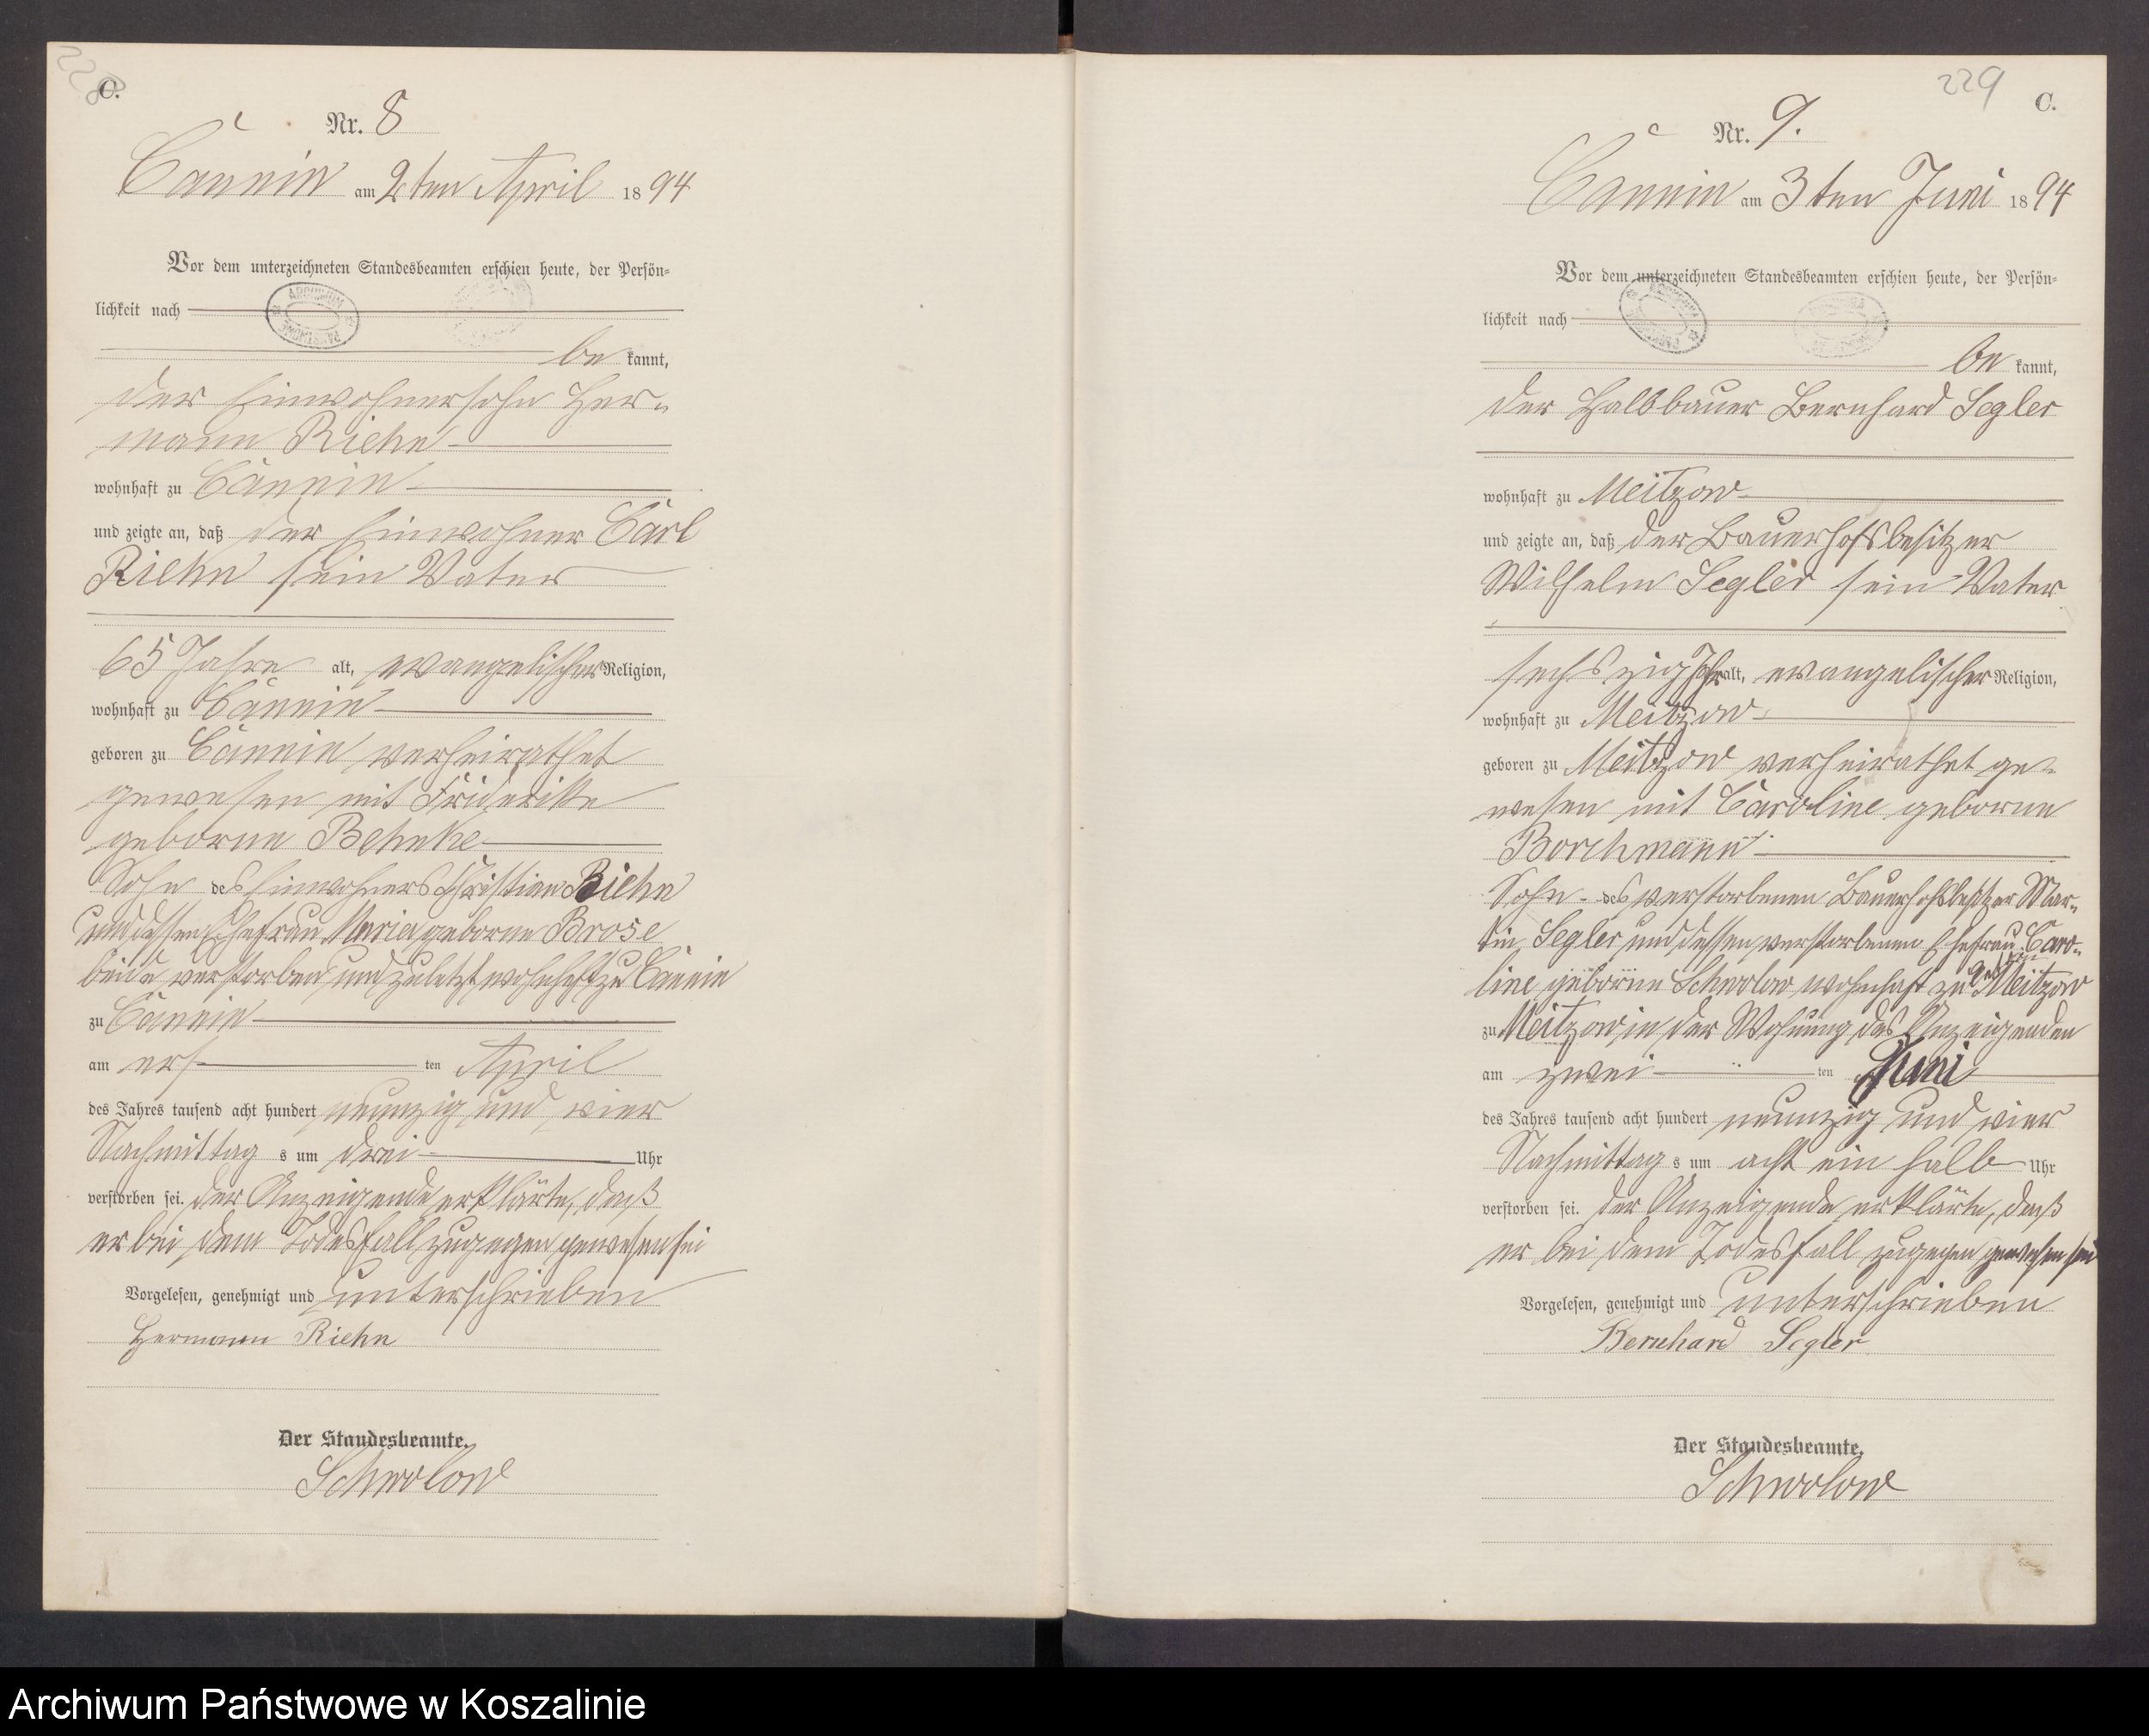 228
C.
Nr. 8
Cannin am 2ten April 1894
Vor dem unterzeichneten Standesbeamten erschien heute, der Persön=
lichkeit nach
ARCHIWUM
be kannt,
der Einwohnersohn Her-
mann Riehn
wohnhaft zu Cannin
und zeigte an, daß der Einwohner Carl
Riehn sein Vater
65 Jahre alt, evangelischer Religion,
wohnhaft zu Cannin
geboren zu Cannin verheirathet
gewesen mit Friderike
geborne Behnke
Sohn des Einwohners Christian Riehn
und dessen Ehefrau Maria geborne Brose
beide verstorben und zuletzt wohnhaft zu Cannin
zu Cannin
am ers ten April
des Jahres tausend acht hundert neunzig und vier
Nachmittag s um drei Uhr
verstorben sei. der Anzeigende erklärte, daß
er bei dem Todesfall zugegen gewesen sei
Vorgelesen, genehmigt und unterschrieben
Hermann Riehn
Der Standesbeamte.
Schwolow
229
C.
Nr. 9.
Cannin am 3ten Juni 1894
Vor dem unterzeichneten Standesbeamten erschien heute, der Persön=
lichkeit nach
be kannt,
der Halbbauer Bernhard Segler
wohnhaft zu Meitzow
und zeigte an, daß der Bauerhofsbesitzer
Wilhelm Segler sein Vater
sechszig Jhr alt, evangelischer Religion,
wohnhaft zu Meitzow
geboren zu Meitzow verheirathet ge-
wesen mit Caroline geborne
Borchmann
Sohn des verstorbenen Bauerhofsbesitzer Mar-
tin Segler und dessen verstorbenen Ehefrau Caro-
line geborne Schwolow wohnhaft zu Meitzow
zu Meitzow in der Wohnung des Anzeigenden
am zwei ten Juni
des Jahres tausend acht hundert neunzig und vier
Nachmittag s um acht ein halb Uhr
verstorben sei. der Anzeigende erklärte, daß
er bei dem Todesfall zugegen gewesen sei
Vorgelesen, genehmigt und unterschrieben
Bernhard Segler
Der Standesbeamte.
Schwolow
Archiwum Państwowe w Koszalinie